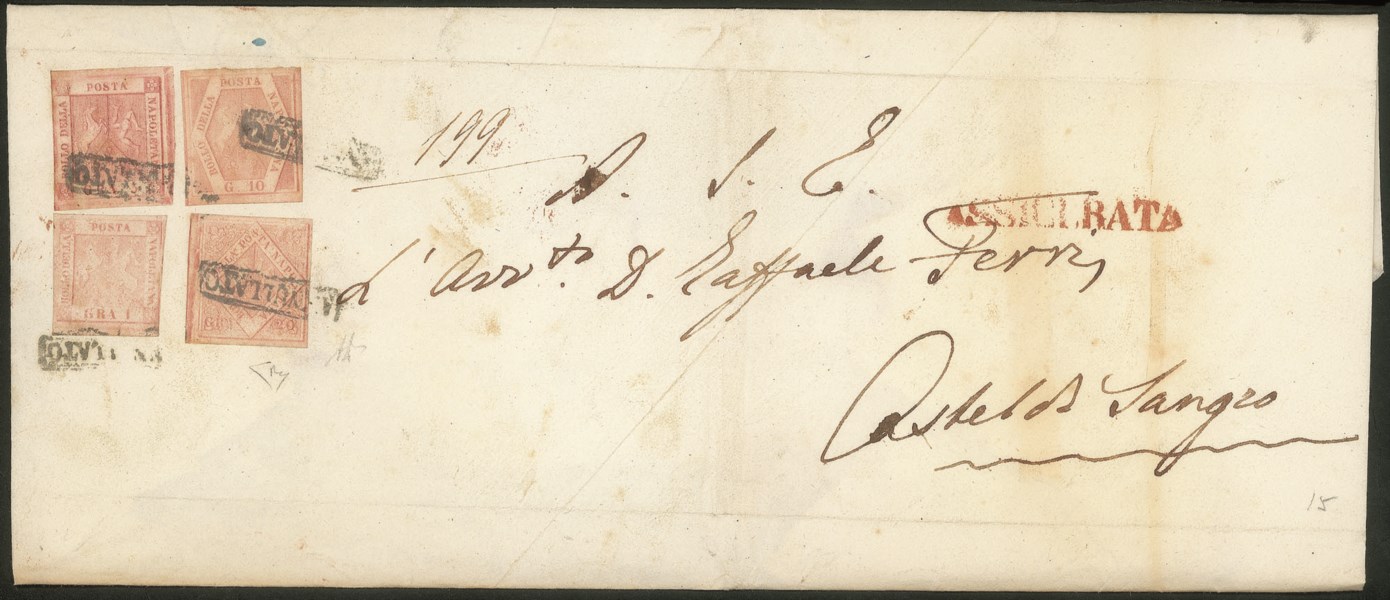 POSTA
BOLLO DELLA
NAPOLETANA
POSTA
BOLLO DELLA
G. 10
POSTA
BOLLO DELLA
GRA 1
POSTA NAPOL
GR 20
ANNULLATO
ANNULLATO
ANNULLATO
ANNULLATO
199
A. S. E.
ASSICURATA
L' Avv.to D. Raffaele Ferri,
Castel di Sangro
15